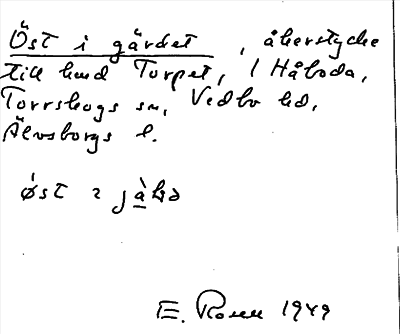 Öst i gärdet, åkerstycke
till hmd Torpet, 1 Håboda,
Torrskogs sn, Vedbo hd,
Älvsborgs l.
øst ı jà
E. Rosell 1949